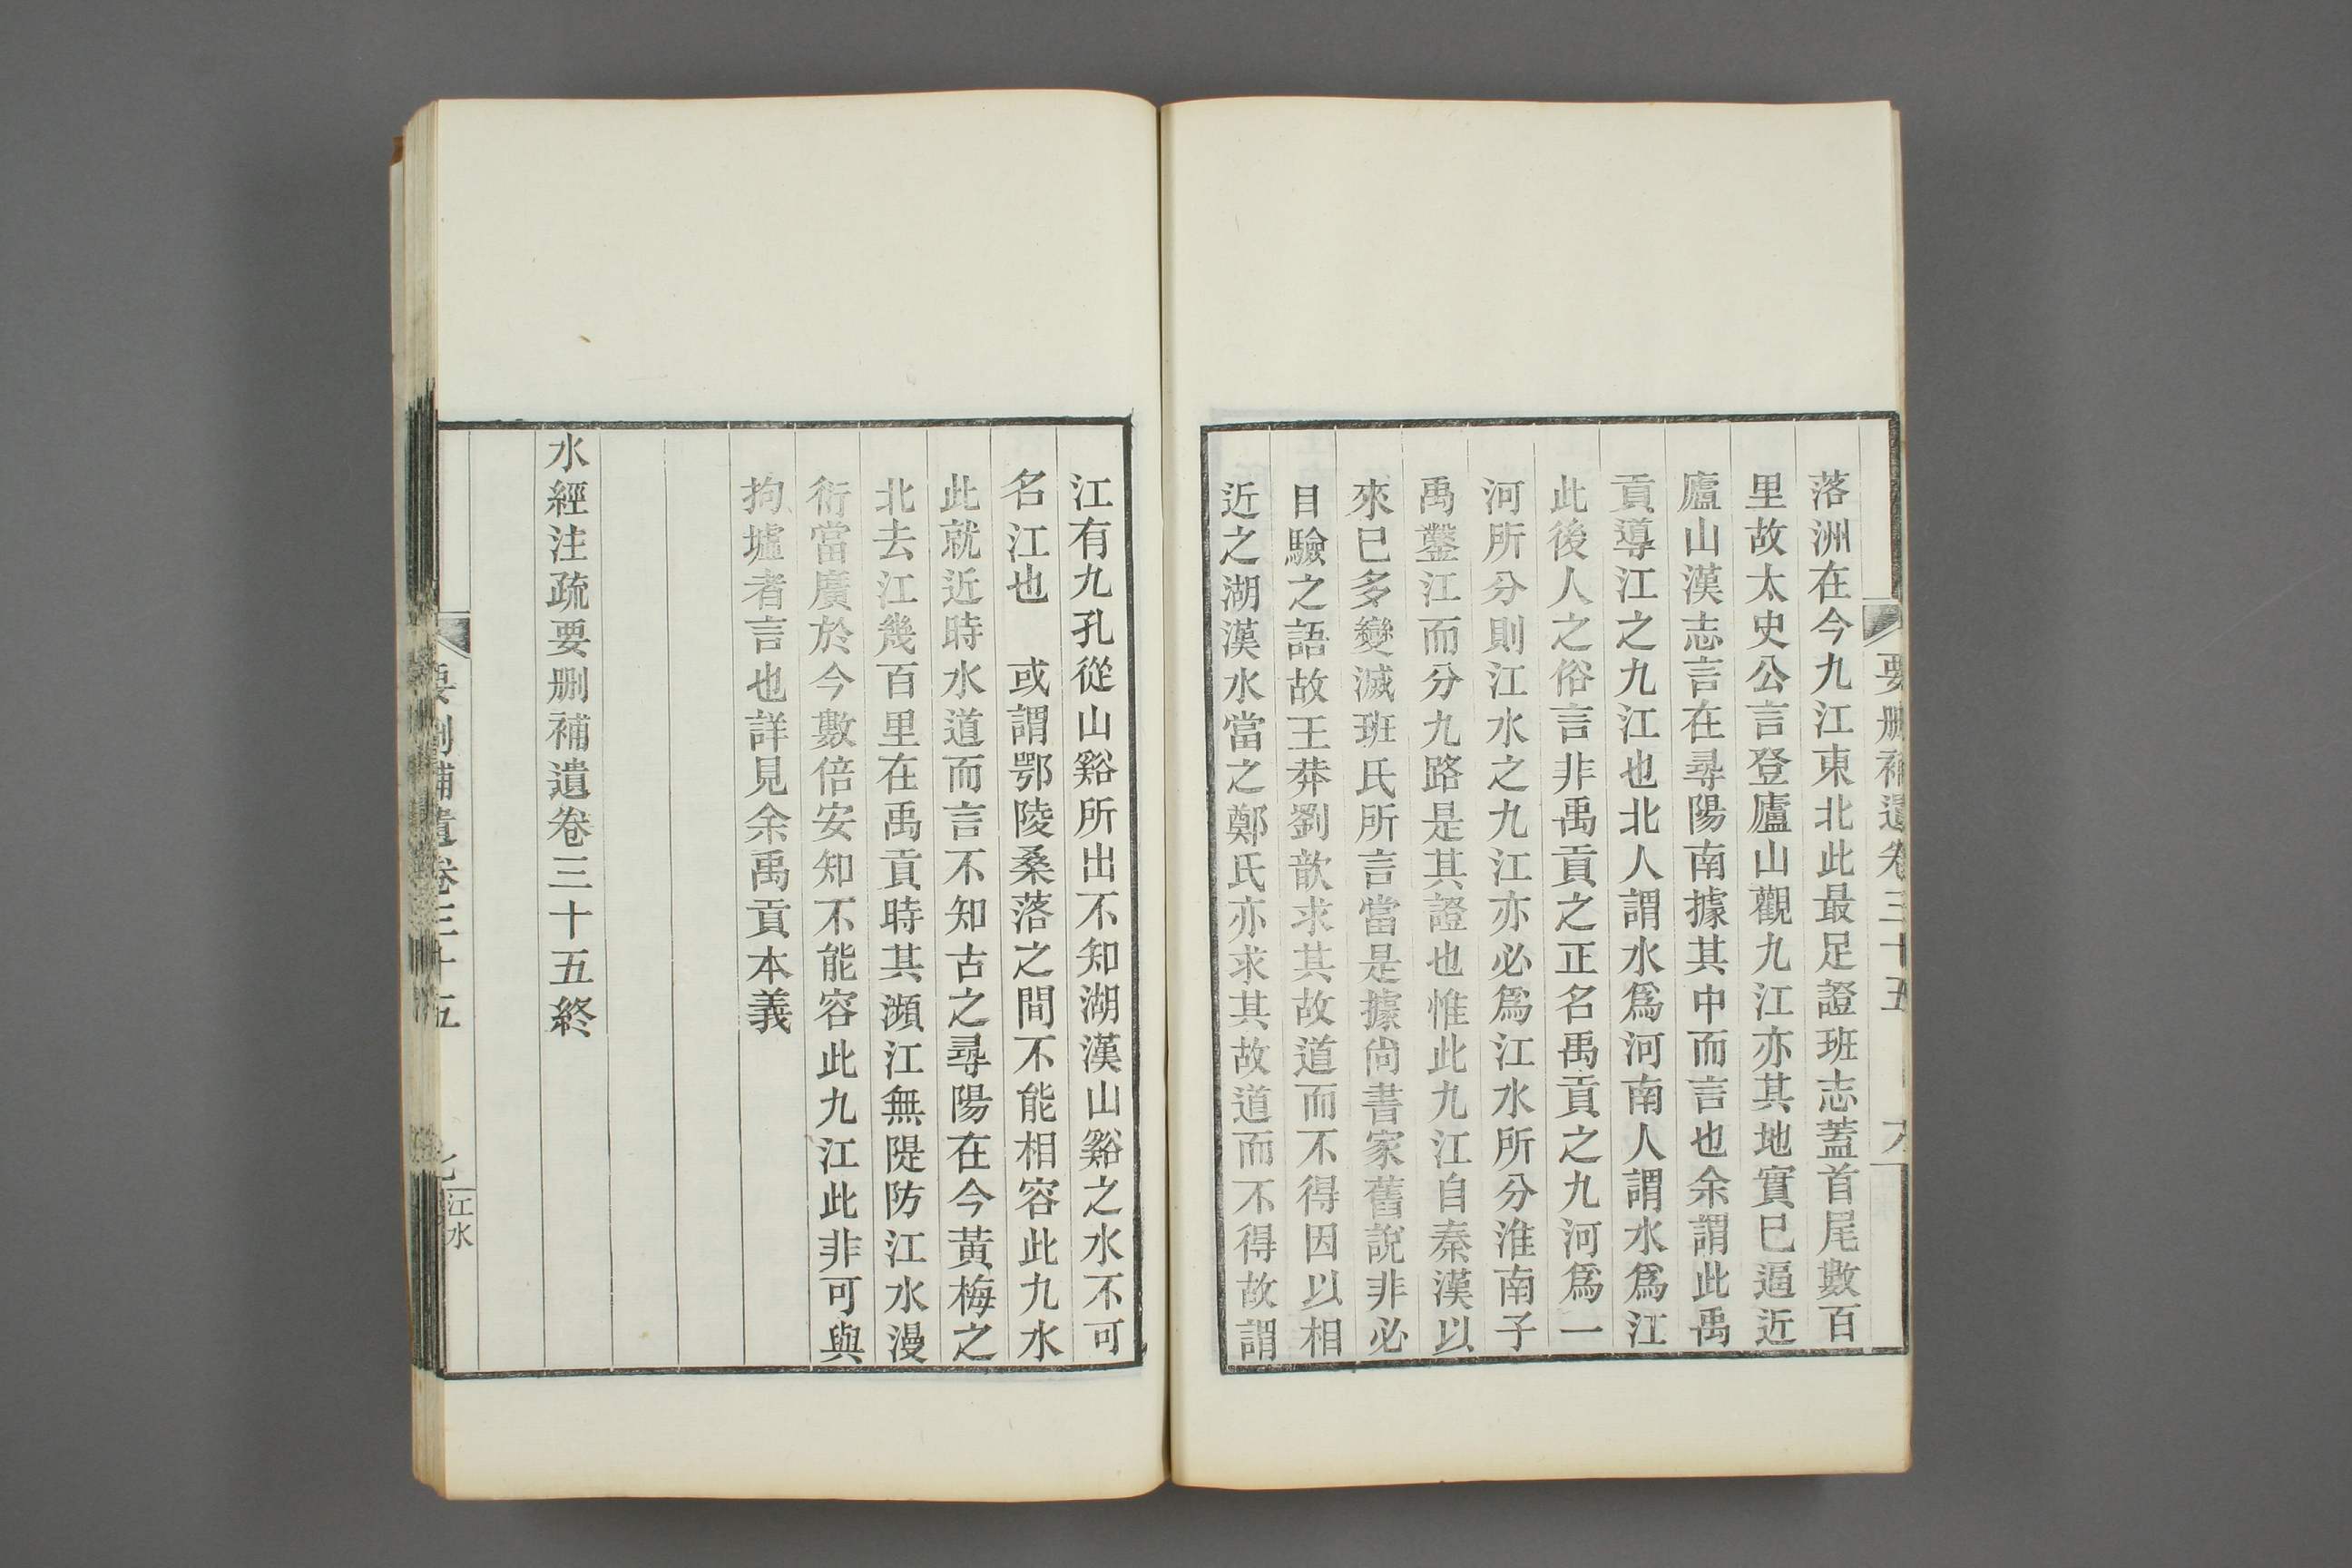 要删補遺卷三十五
落洲在今九江東北此最足證班志蓋首尾數百
里故太史公言登廬山觀九江亦其地實已逼近
廬山漢志言在尋陽南據其中而言也余謂此禹
貢導江之九江也北人謂水爲河南人謂水爲江
此後人之俗言非禹貢之正名禹貢之九河爲一
河所分則江水之九江亦必爲江水所分淮南子
禹鑿江而分九路是其證也惟此九江自秦漢以
來已多變滅班氏所言當是據尚書家舊說非必
目驗之語故王莽劉歆求其故道而不得因以相
近之湖漢水當之鄭氏亦求其故道而不得故謂
江有九孔從山谿所出不知湖漢山谿之水不可
名江也　或謂鄂陵桑落之間不能相容此九水
此就近時水道而言不知古之尋陽在今黃梅之
北去江幾百里在禹貢時其瀕江無隄防江水漫
衍當廣於今數倍安知不能容此九江此非可與
拘墟者言也詳見余禹貢本義
水經注疏要删補遺卷三十五終
要删補遺卷三十五
江水